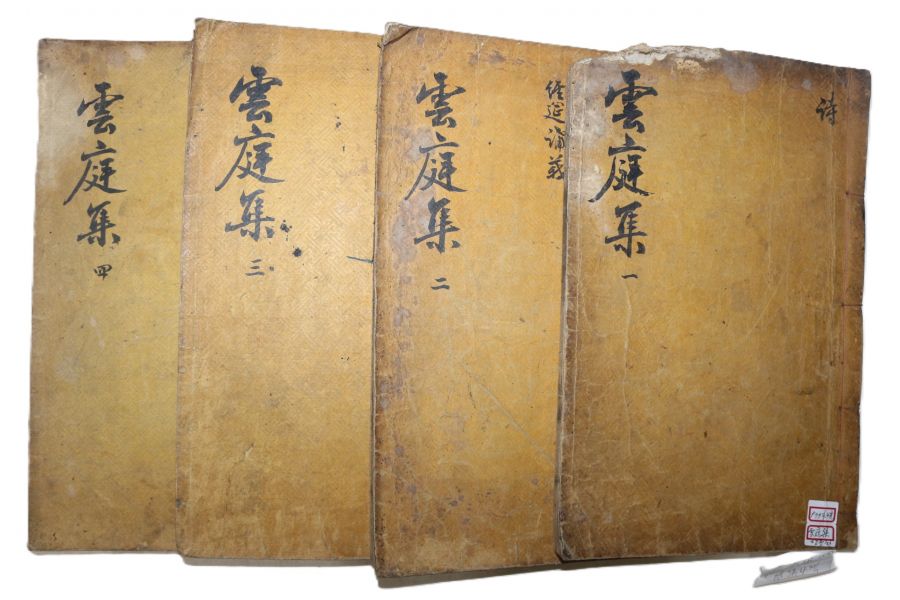 雲庭集 一
詩
雲庭集 二
經筵講義
雲庭集 三
雲庭集 四